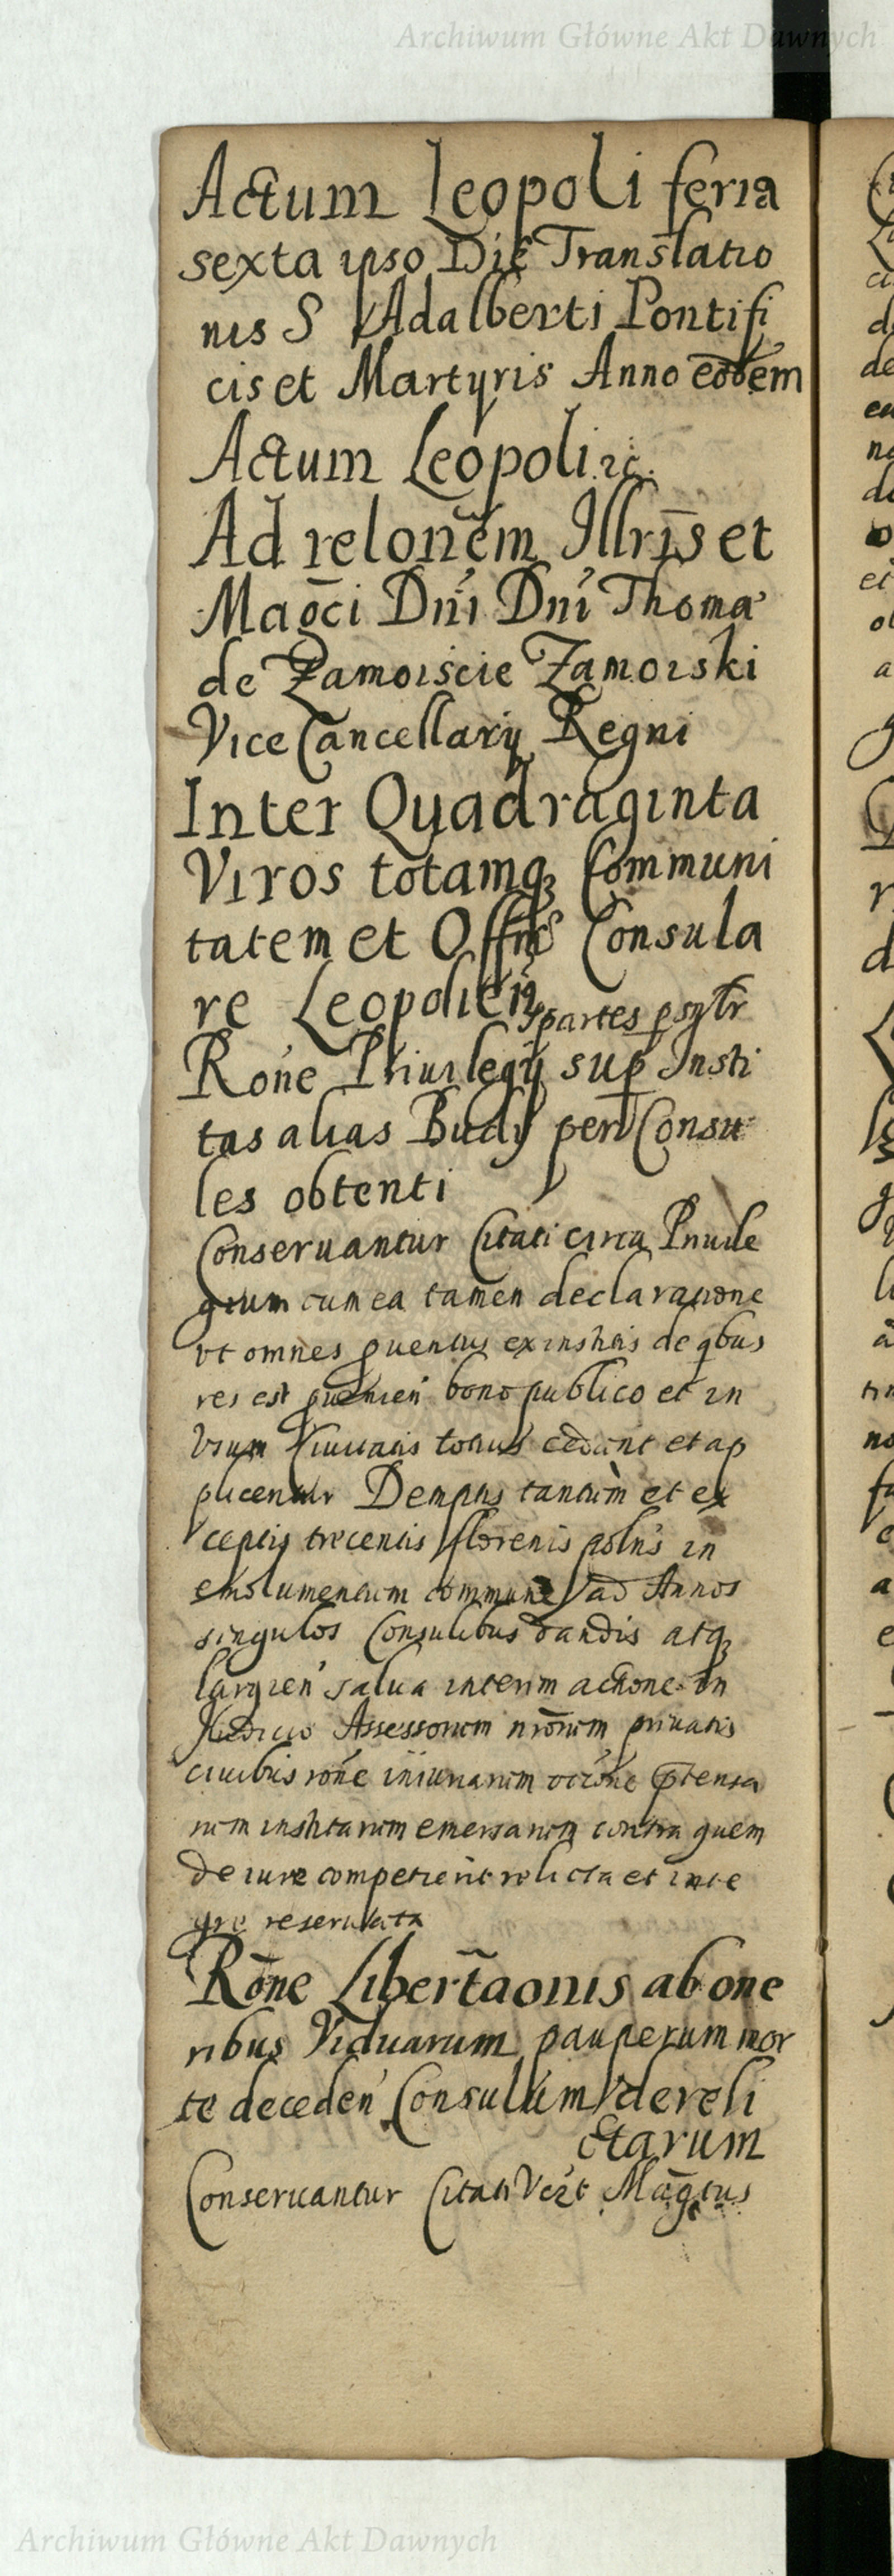 Archiwum Główne Akt Dawnych
Actum Leopoli feria
sexta ipso Die Translatio
nis S Adalberti Pontifi
cis et Martyris Anno eodem
Actum Leopoli
Ad relonem Illris et
Magci Dni Dni Thoma
de Zamoiscie Zamoiski
Vice Cancellarij Regni
Inter Quadraginta
Viros totamq Communi
tatem et Consula
re Leopolien partes
Rone Priuilegij sup Insti
tas alias Budy per Consu
les obtenti
Conseruantur Citati circa Priuile
gium cum ea tamen declaratione
vt omnes puentus ex institis de qbus
res est bono publico et in
Vsum Ciuitatis totius cedant et ap
plicentur Demptis tantum et ex
ceptis trecentis florenis in
emolumentum commune ad Annos
singulos Consulibus dandis atq
largien salua interim actione in
Iudicio Assessorum nrorum priuatis
ciuibus rone iniuriarum ptensa
rum institarum emersarum contra quem
de iure competierit relicta et inte
gre reseruata
Rone Libertaonis ab one
ribus Viduarum pauperum mor
te deceden Consulum dereli
ctarum
Conseruantur Citati
Archiwum Główne Akt Dawnych